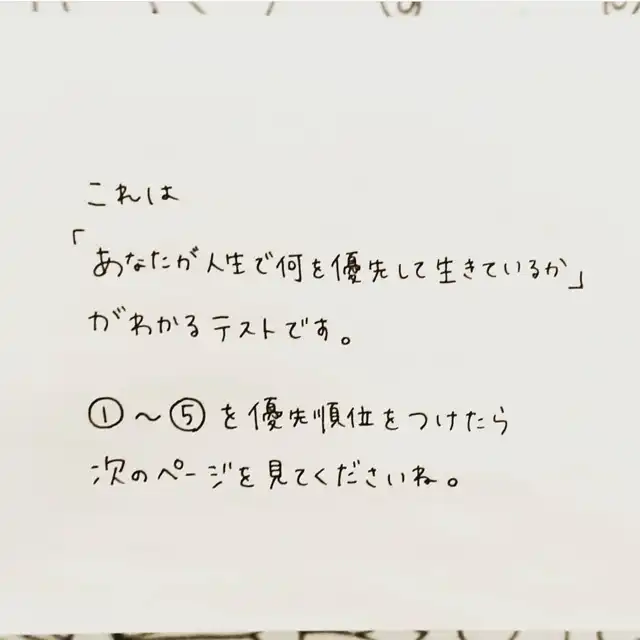 これは
「あなたが人生で何を優先して生きているか」
がわかるテストです。
①～⑤を優先順位をつけたら
次のページを見てくださいね。